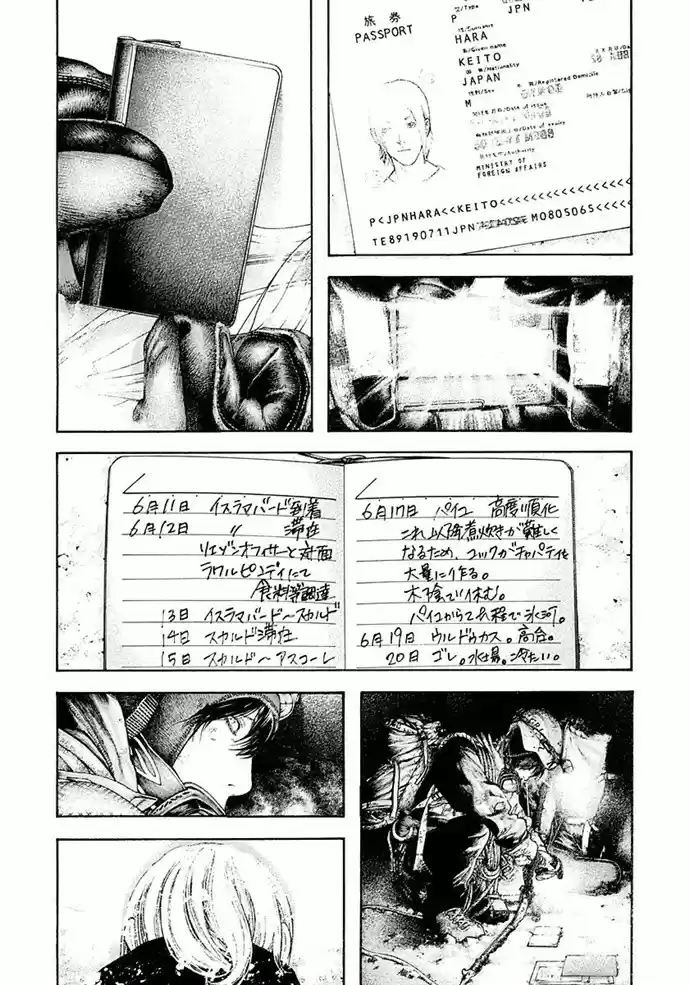 旅券
PASSPORT
P JPN
HARA
KEITO
JAPAN
M
MINISTRY OF
FOREIGN AFFAIRS
P<JPNHARA<<KEITO<<<<<<<<<<<<<<<<<
TE89190711JPN M0805065<<<<<
6月11日 イスラマバード到着
6月12日 〃 滞在
リエゾンオフィサーと対面
ラワルピンディにて
食料等調達
13日 イスラマバード〜スカルド
14日 スカルド滞在
15日 スカルド〜アスコーレ
6月17日 パイユ 高度順化
これ以降煮炊きが難しく
なるため、コックがチャパティを
大量に作る。
木陰で休む。
パイユから
6月19日 ウルドゥカス。高台。
20日 ゴレ。水場。冷たい。